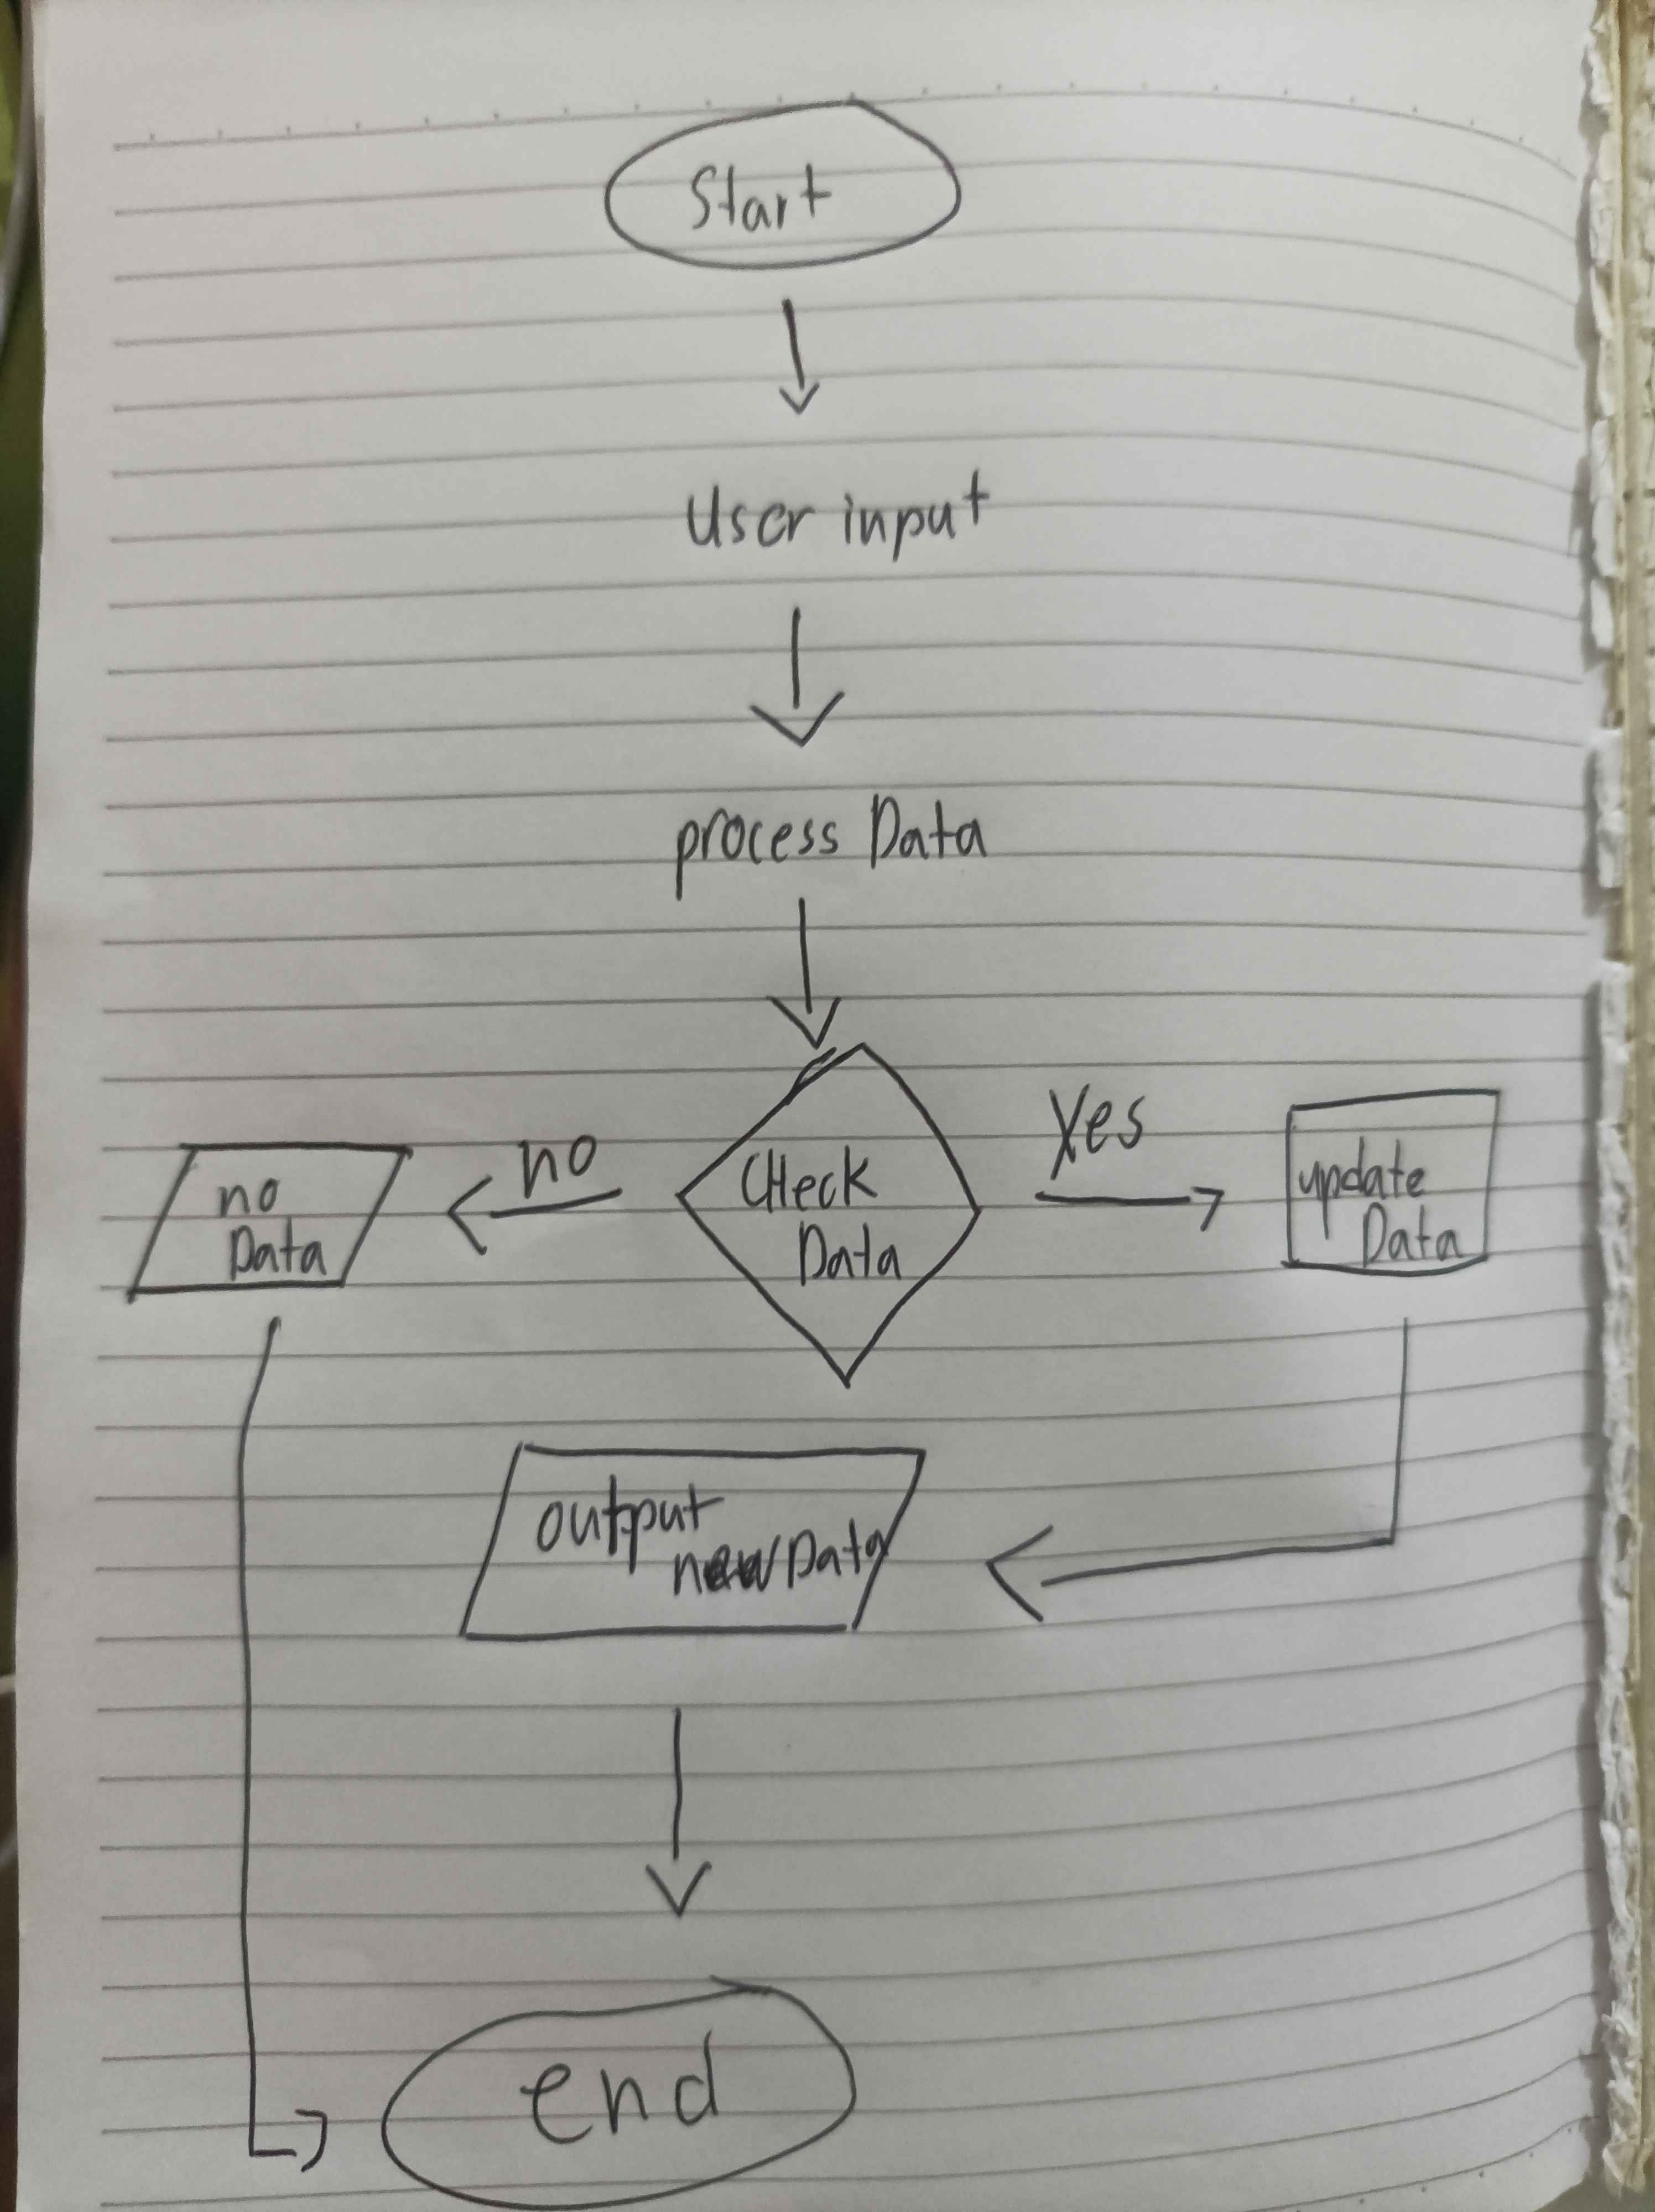 Start
User input
process Data
no
CHeck
Data
Yes
no
Data
update
Data
output
new Data
end